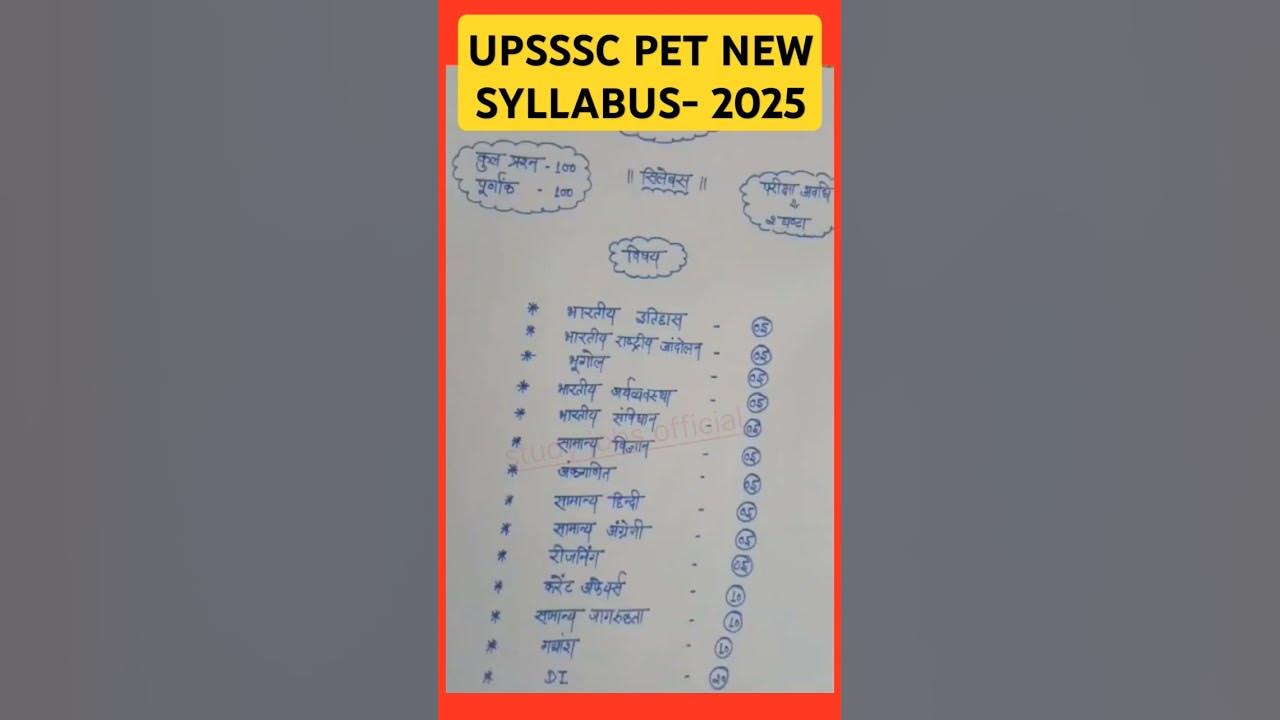 UPSSSC PET NEW
SYLLABUS- 2025
कुल प्रश्न - 100
पूर्णांक - 100
॥ सिलेबस ॥
परीक्षा अवधि
⇓
२ घण्टा
विषय
* भारतीय इतिहास - 05
* भारतीय राष्ट्रीय आंदोलन - 05
* भूगोल - 05
* भारतीय अर्थव्यवस्था - 05
* भारतीय संविधान - 05
* सामान्य विज्ञान - 05
* अंकगणित - 05
* सामान्य हिन्दी - 05
* सामान्य अंग्रेजी - 05
* रीजनिंग - 05
* करेंट अफेयर्स - 10
* सामान्य जागरूकता - 10
* गद्यांश - 10
* DI - 20
study jobs official